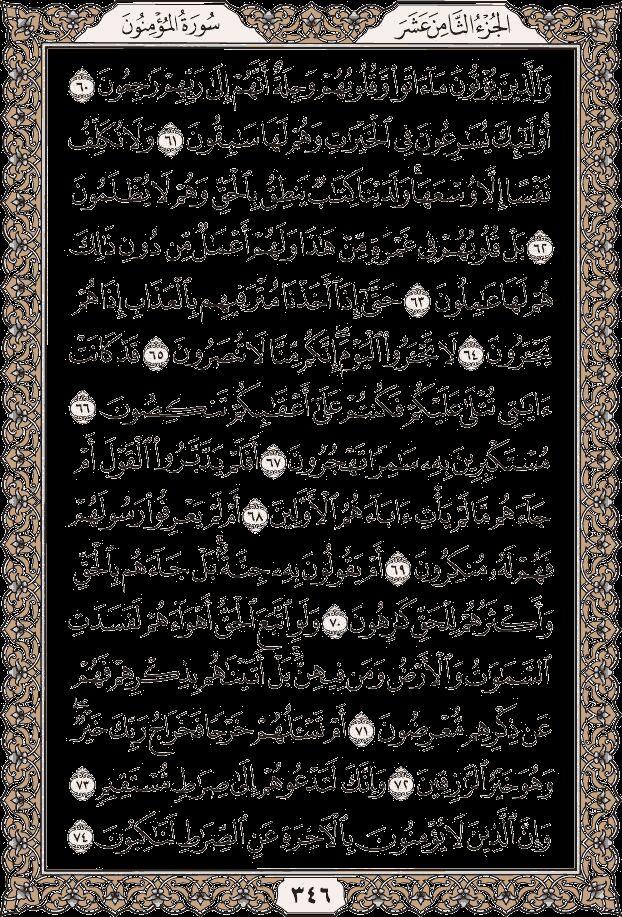 الجزء الثامن عشر
سورة المؤمنون
وَٱلَّذِينَ يُؤْتُونَ مَآ ءَاتَوا۟ وَّقُلُوبُهُمْ وَجِلَةٌ أَنَّهُمْ إِلَىٰ رَبِّهِمْ رَٰجِعُونَ ٦٠
أُو۟لَٰٓئِكَ يُسَٰرِعُونَ فِى ٱلْخَيْرَٰتِ وَهُمْ لَهَا سَٰبِقُونَ ٦١ وَلَا نُكَلِّفُ
نَفْسًا إِلَّا وُسْعَهَا ۖ وَلَدَيْنَا كِتَٰبٌ يَنطِقُ بِٱلْحَقِّ ۚ وَهُمْ لَا يُظْلَمُونَ
٦٢ بَلْ قُلُوبُهُمْ فِى غَمْرَةٍ مِّنْ هَٰذَا وَلَهُمْ أَعْمَٰلٌ مِّن دُونِ ذَٰلِكَ
هُمْ لَهَا عَٰمِلُونَ ٦٣ حَتَّىٰٓ إِذَآ أَخَذْنَا مُتْرَفِيهِم بِٱلْعَذَابِ إِذَا هُمْ
يَجْـَٔرُونَ ٦٤ لَا تَجْـَٔرُوا۟ ٱلْيَوْمَ ۖ إِنَّكُم مِّنَّا لَا تُنصَرُونَ ٦٥ قَدْ كَانَتْ
ءَايَٰتِى تُتْلَىٰ عَلَيْكُمْ فَكُنتُمْ عَلَىٰٓ أَعْقَٰبِكُمْ تَنكِصُونَ ٦٦
مُسْتَكْبِرِينَ بِهِۦ سَٰمِرًا تَهْجُرُونَ ٦٧ أَفَلَمْ يَدَّبَّرُوا۟ ٱلْقَوْلَ أَمْ
جَآءَهُم مَّا لَمْ يَأْتِ ءَابَآءَهُمُ ٱلْأَوَّلِينَ ٦٨ أَمْ لَمْ يَعْرِفُوا۟ رَسُولَهُمْ
فَهُمْ لَهُۥ مُنكِرُونَ ٦٩ أَمْ يَقُولُونَ بِهِۦ جِنَّةٌۢ ۚ بَلْ جَآءَهُم بِٱلْحَقِّ
وَأَكْثَرُهُمْ لِلْحَقِّ كَٰرِهُونَ ٧٠ وَلَوِ ٱتَّبَعَ ٱلْحَقُّ أَهْوَآءَهُمْ لَفَسَدَتِ
ٱلسَّمَٰوَٰتُ وَٱلْأَرْضُ وَمَن فِيهِنَّ ۚ بَلْ أَتَيْنَٰهُم بِذِكْرِهِمْ فَهُمْ
عَن ذِكْرِهِم مُّعْرِضُونَ ٧١ أَمْ تَسْـَٔلُهُمْ خَرْجًا فَخَرَاجُ رَبِّكَ خَيْرٌ ۖ
وَهُوَ خَيْرُ ٱلرَّٰزِقِينَ ٧٢ وَإِنَّكَ لَتَدْعُوهُمْ إِلَىٰ صِرَٰطٍ مُّسْتَقِيمٍ ٧٣
وَإِنَّ ٱلَّذِينَ لَا يُؤْمِنُونَ بِٱلْءَاخِرَةِ عَنِ ٱلصِّرَٰطِ لَنَٰكِبُونَ ٧٤
٣٤٦